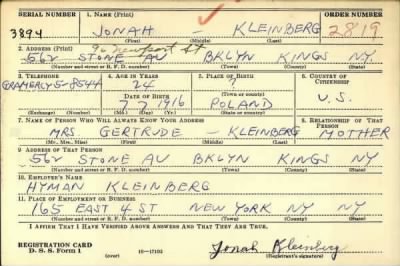 SERIAL NUMBER 1. NAME (Print) ORDER NUMBER
3894 JONAH KLEINBERG 2819
(First) (Middle) (Last)
2. ADDRESS (Print) 90 Newport St
562 STONE AV BKLYN KINGS NY.
(Number and street or R. F. D. number) (Town) (County) (State)
3. TELEPHONE 4. AGE IN YEARS 5. PLACE OF BIRTH 6. COUNTRY OF CITIZENSHIP
GRAMERCY 5-8544 24 ?
(Town or county)
DATE OF BIRTH
7 7 1916 POLAND U.S.
(Exchange) (Number) (Mo.) (Day) (Yr.) (State or country)
7. NAME OF PERSON WHO WILL ALWAYS KNOW YOUR ADDRESS 8. RELATIONSHIP OF THAT PERSON
MRS GERTRUDE — KLEINBERG MOTHER
(Mr., Mrs., Miss) (First) (Middle) (Last)
9. ADDRESS OF THAT PERSON
562 STONE AV BKLYN KINGS NY
(Number and street or R. F. D. number) (Town) (County) (State)
10. EMPLOYER'S NAME
HYMAN KLEINBERG
11. PLACE OF EMPLOYMENT OR BUSINESS
165 EAST 4 ST NEW YORK NY NY
(Number and street or R. F. D. number) (Town) (County) (State)
I AFFIRM THAT I HAVE VERIFIED ABOVE ANSWERS AND THAT THEY ARE TRUE.
REGISTRATION CARD
D. S. S. Form 1 (over) 16—17105 Jonah Kleinberg
(Registrant's signature)